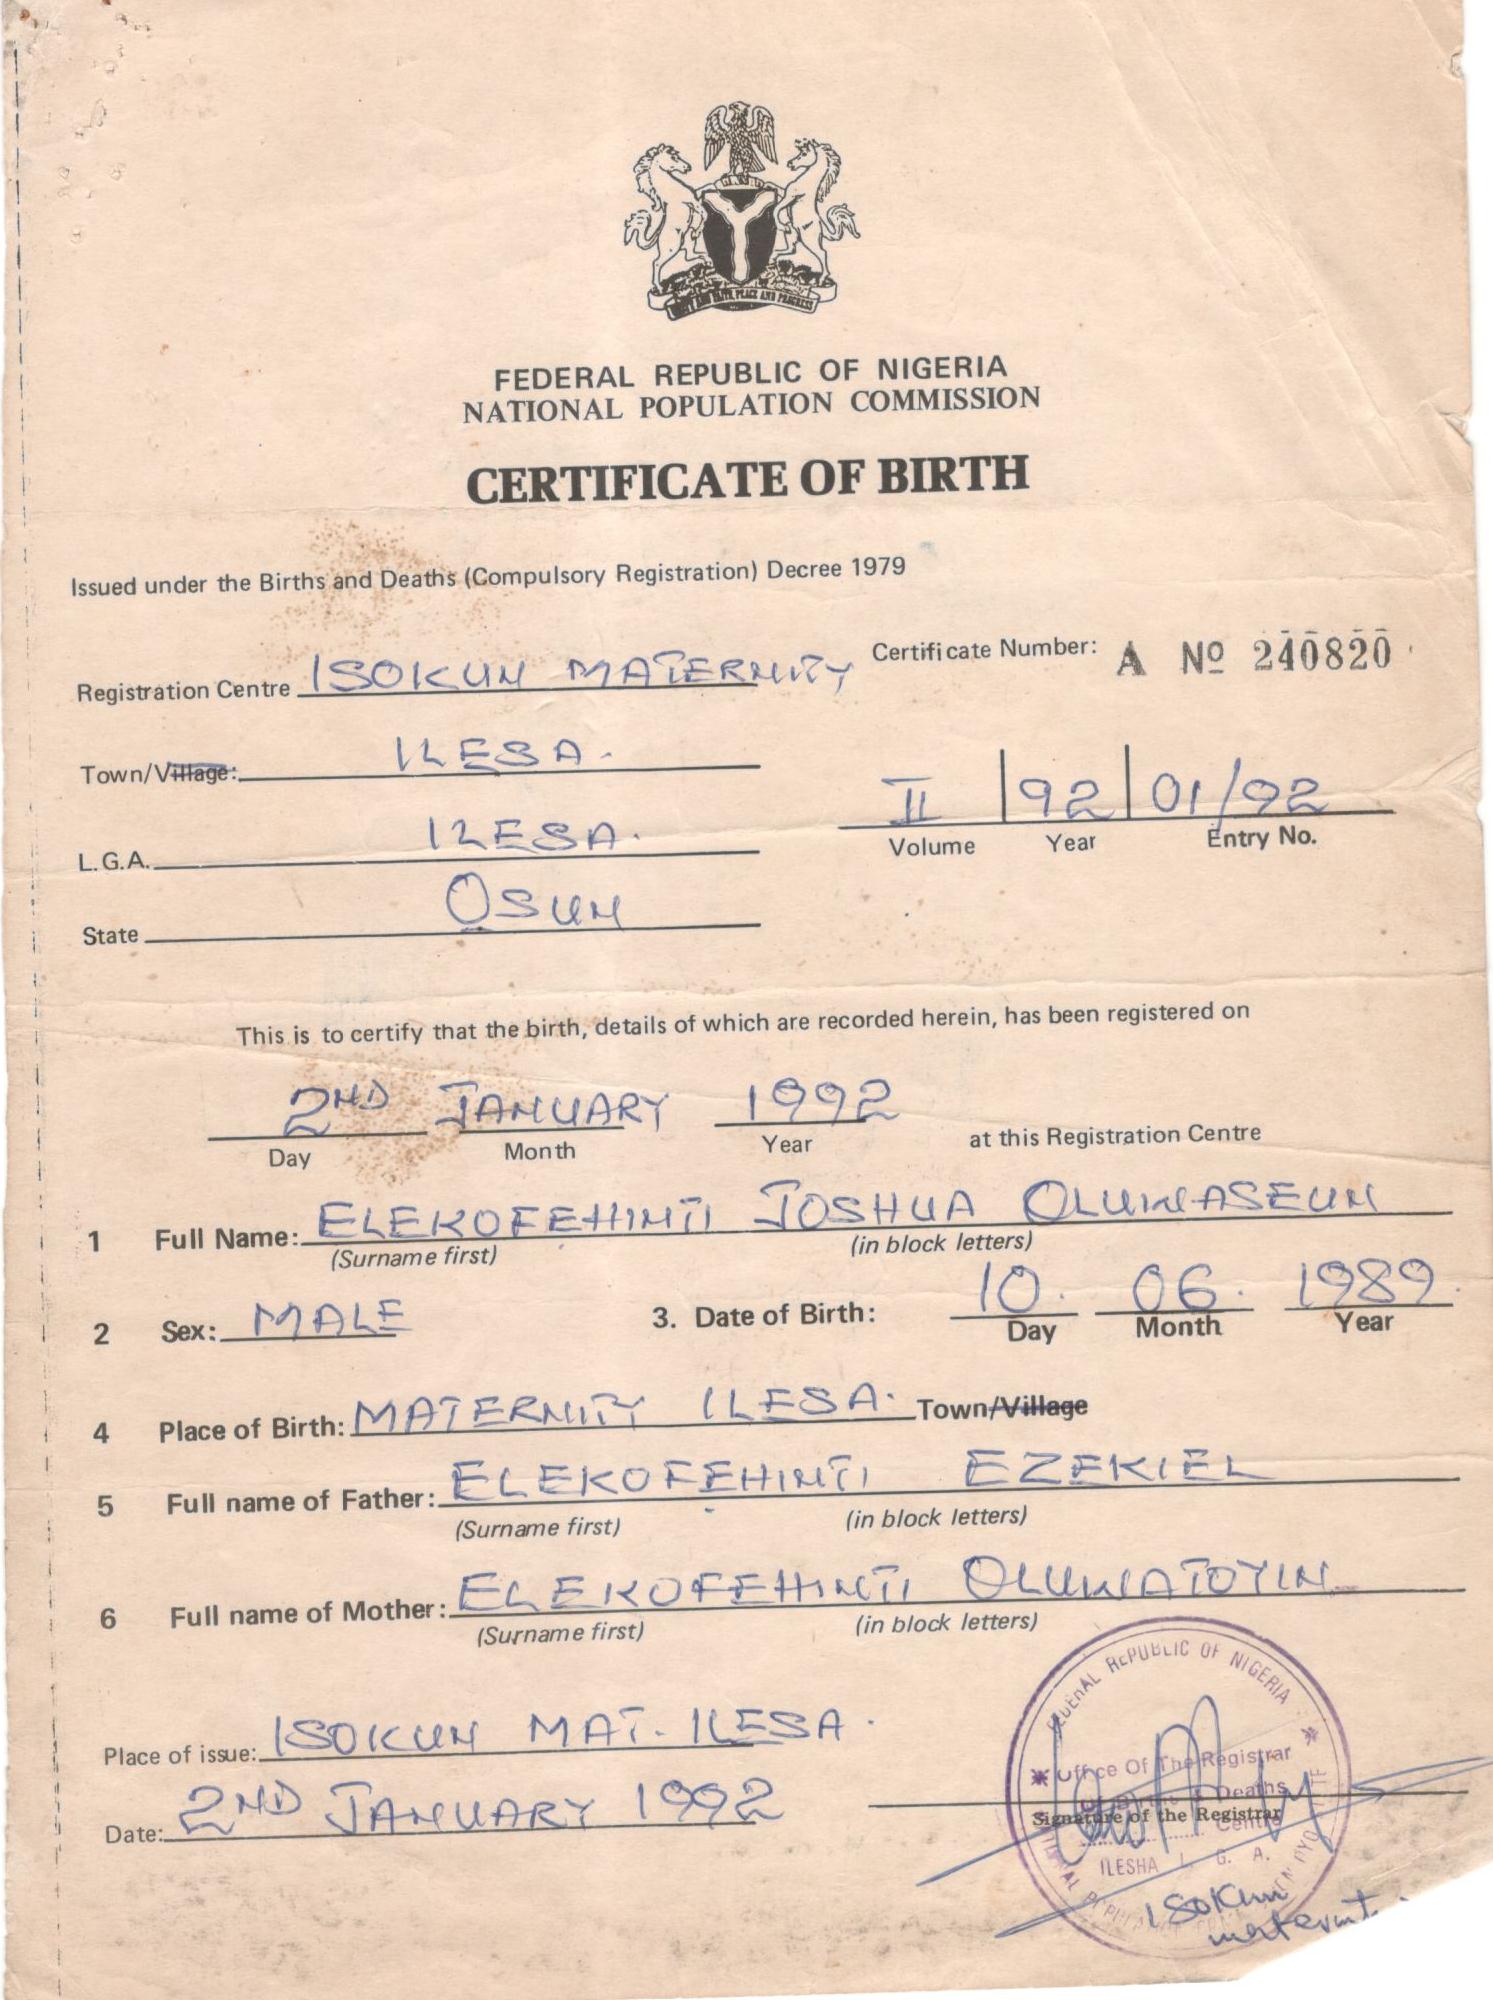 UNITY AND FAITH, PEACE AND PROGRESS
FEDERAL REPUBLIC OF NIGERIA
NATIONAL POPULATION COMMISSION
CERTIFICATE OF BIRTH
Issued under the Births and Deaths (Compulsory Registration) Decree 1979
Registration Centre ISOKUN MATERNITY
Certificate Number: A No 240820
Town/Village: ILESA.
II | 92 | 01/92
Volume Year Entry No.
L.G.A. ILESA.
State OSUN
This is to certify that the birth, details of which are recorded herein, has been registered on
2ND JANUARY 1992
Day Month Year at this Registration Centre
1 Full Name: ELEKOFEHINTI JOSHUA OLUWASEUN
(Surname first) (in block letters)
2 Sex: MALE 3. Date of Birth: 10. 06. 1989.
Day Month Year
4 Place of Birth: MATERNITY ILESA. Town/Village
5 Full name of Father: ELEKOFEHINTI EZEKIEL
(Surname first) (in block letters)
6 Full name of Mother: ELEKOFEHINTI OLUWATOYIN
(Surname first) (in block letters)
Place of issue: ISOKUN MAT. ILESA.
Date: 2ND JANUARY 1992
FEDERAL REPUBLIC OF NIGERIA
Office Of The Registrar
Deaths
Signature of the Registrar
Centre
ILESHA L. G. A.
Isokun